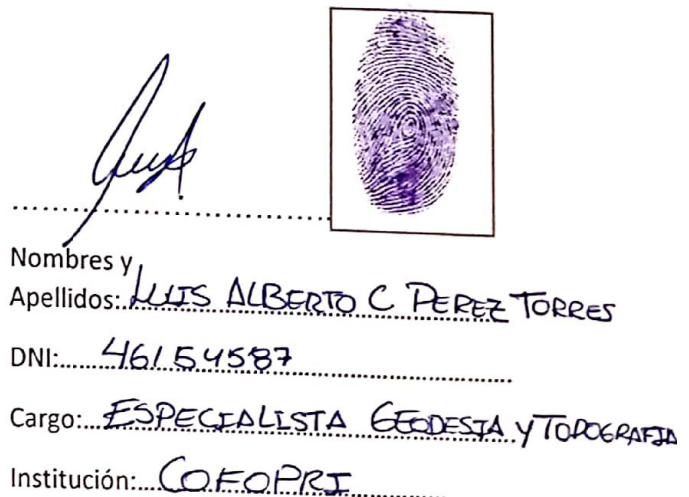 Nombres y
Apellidos: LUIS ALBERTO C PEREZ TORRES
DNI: 46154587
Cargo: ESPECIALISTA GEODESIA y TOPOGRAFIA
Institución: COFOPRI